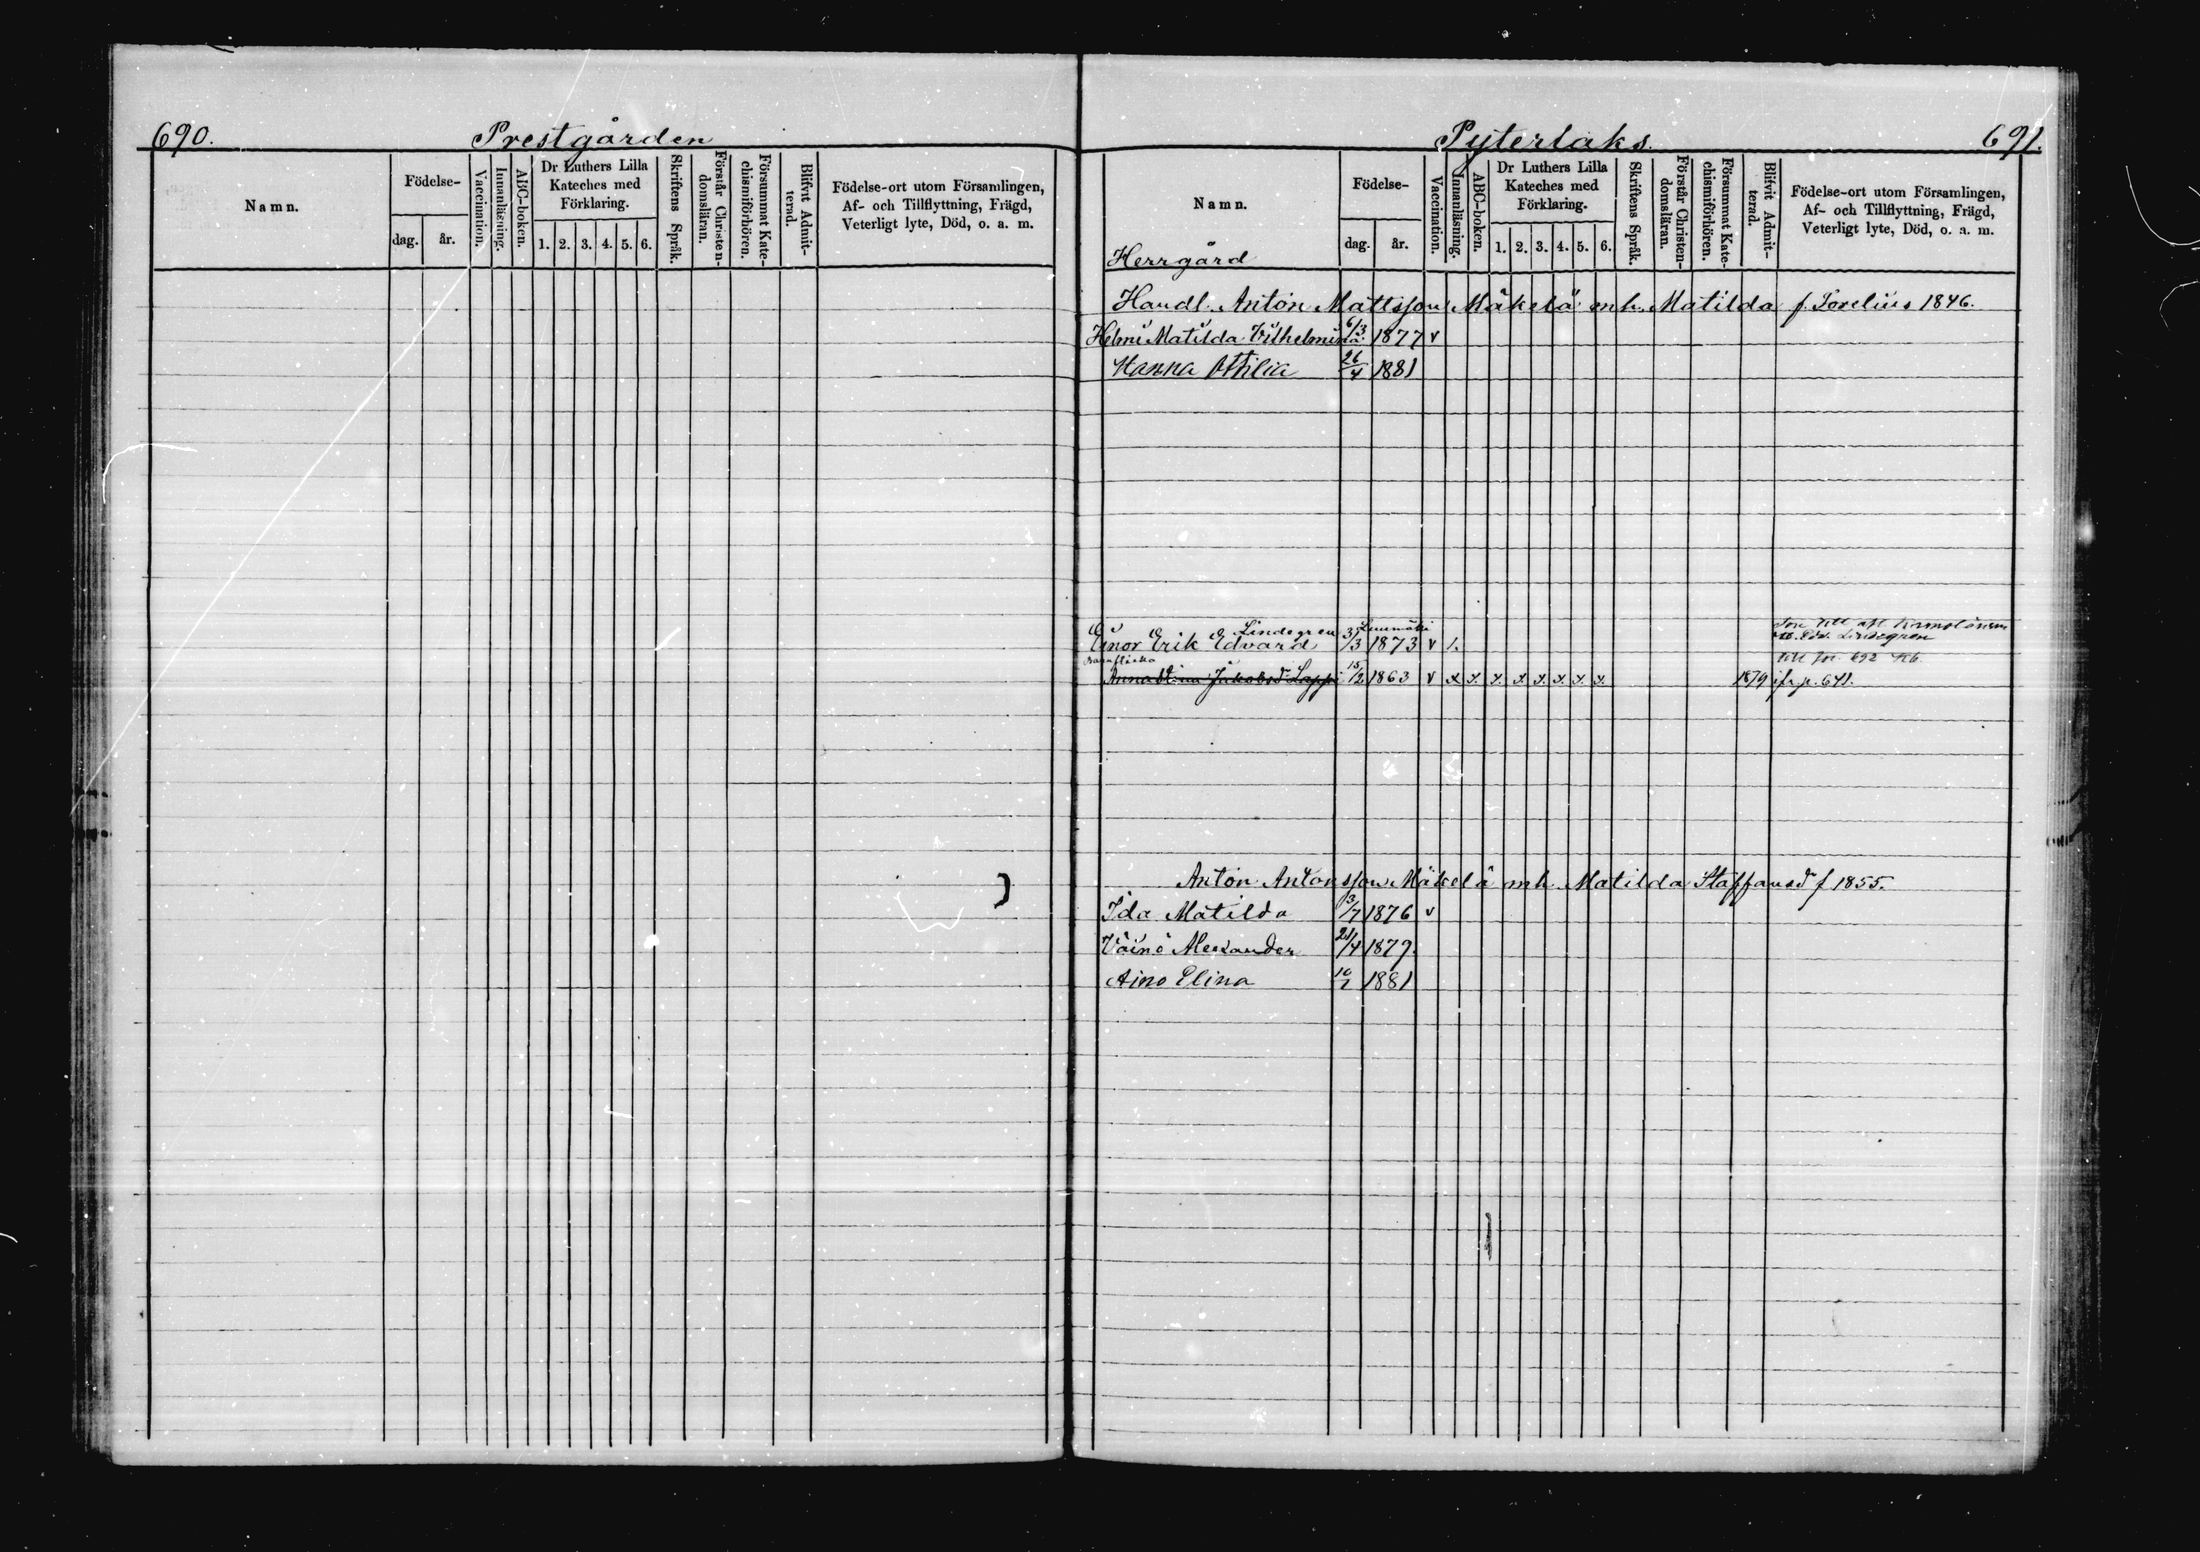 690.
Prestgården
Namn.
Födelse-
dag.
år.
Vaccination.
Innanläsning.
ABC-boken.
Dr Luthers Lilla
Kateches med
Förklaring.
1. 2. 3. 4. 5. 6.
Skriftens Språk.
Förstår Christen-
domsläran.
Försummat Kate-
chismiförhören.
Blifvit Admit-
terad.
Födelse-ort utom Församlingen,
Af- och Tillflyttning, Frägd,
Veterligt lyte, Död, o. a. m.
Pyterlaks.
691.
Namn.
Födelse-
dag.
år.
Vaccination.
Innanläsning.
ABC-boken.
Dr Luthers Lilla
Kateches med
Förklaring.
1. 2. 3. 4. 5. 6.
Skriftens Språk.
Förstår Christen-
domsläran.
Försummat Kate-
chismiförhören.
Blifvit Admit-
terad.
Födelse-ort utom Församlingen,
Af- och Tillflyttning, Frägd,
Veterligt lyte, Död, o. a. m.
Herrgård
Handl. Anton Mattsson Mäkelä m.h. Matilda f. Forelius 1846.
Helmi Matilda Vilhelmina 6/3 1877 v
Hanna Ottilia 26/4 1881
Lindegren Luumäki
Einor Erik Edvard 31/3 1873 v 1.
Son till
Edv. Lindegren
till 692
Barnflicka
Anna Jakobsdr Lappi 15/2 1863 v x x. x. x. x. x. x. x. 1879 jfr p. 641.
Anton Antonsson Mäkelä m.h. Matilda Staffansdr f 1855.
Ida Matilda 3/7 1876 v
Väinö Alexander 24/4 1879.
Aino Elina 10/7 1881